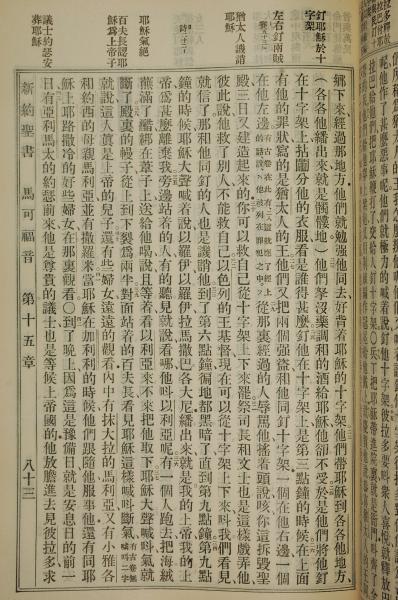 釘耶穌於十
字架
左右釘兩賊
猶太人譏誚
耶穌
耶穌氣絕
百夫長認耶
穌爲上帝子
議士約瑟安
葬耶穌
鄉下來經過那地方他們就勉强他同去好背着耶穌的十字架他們帶耶穌到各各他地方
（各各他繙出來就是髑髏地）他們拏沒藥調和的酒給耶穌他卻不受於是他們將他釘
在十字架上拈鬮分他的衣服看是誰得甚麼釘他在十字架上是第三點鐘的時候在上面
有他的罪狀寫的是猶太人的王他們又把兩個强盜和他同釘十字架一個在他右邊一個
在他左邊有古卷在此有二十八這就應了經上的話說他被列在罪犯之中從那裏經過的人辱罵他搖着頭說咳你這拆毀聖
殿三日又建造起來的你可以救自己從十字架上下來罷祭司長和文士也是這樣戲弄他
彼此說他救了別人不能救自己以色列的王基督現在可以從十字架上下來叫我們看見
就信了那和他同釘的人也是譏誚他到了第六點鐘徧地都黑暗了直到第九點鐘第九點
鐘的時候耶穌大聲喊着說以羅伊以羅伊拉馬撒巴各大尼繙出來就是我的上帝我的上
帝爲甚麼離棄我旁邊站着的人有的聽見就說看哪他叫以利亞呢有一個人跑去把海絨
蘸滿了醋綁在葦子上送給他喝說且等着看以利亞來不來把他取下耶穌大聲喊叫氣就
斷了殿裏的幔子從上到下裂爲兩半對面站着的百夫長看見耶穌這樣喊叫斷氣有古卷無喊叫二字
就說這人眞是上帝的兒子還有些婦女遠遠的觀看內中有抹大拉的馬利亞又有小雅各
和約西的母親馬利亞並有撒羅米當耶穌在加利利的時候他們跟隨他服事他還有同耶
穌上耶路撒冷的好些婦女在那裏觀看〇到了晚上因爲這是豫備日就是安息日的前一
日有亞利馬太的約瑟前來他是尊貴的議士也是等候上帝國的他放膽進去見彼拉多求
新約聖書 馬可福音 第十五章 八十三